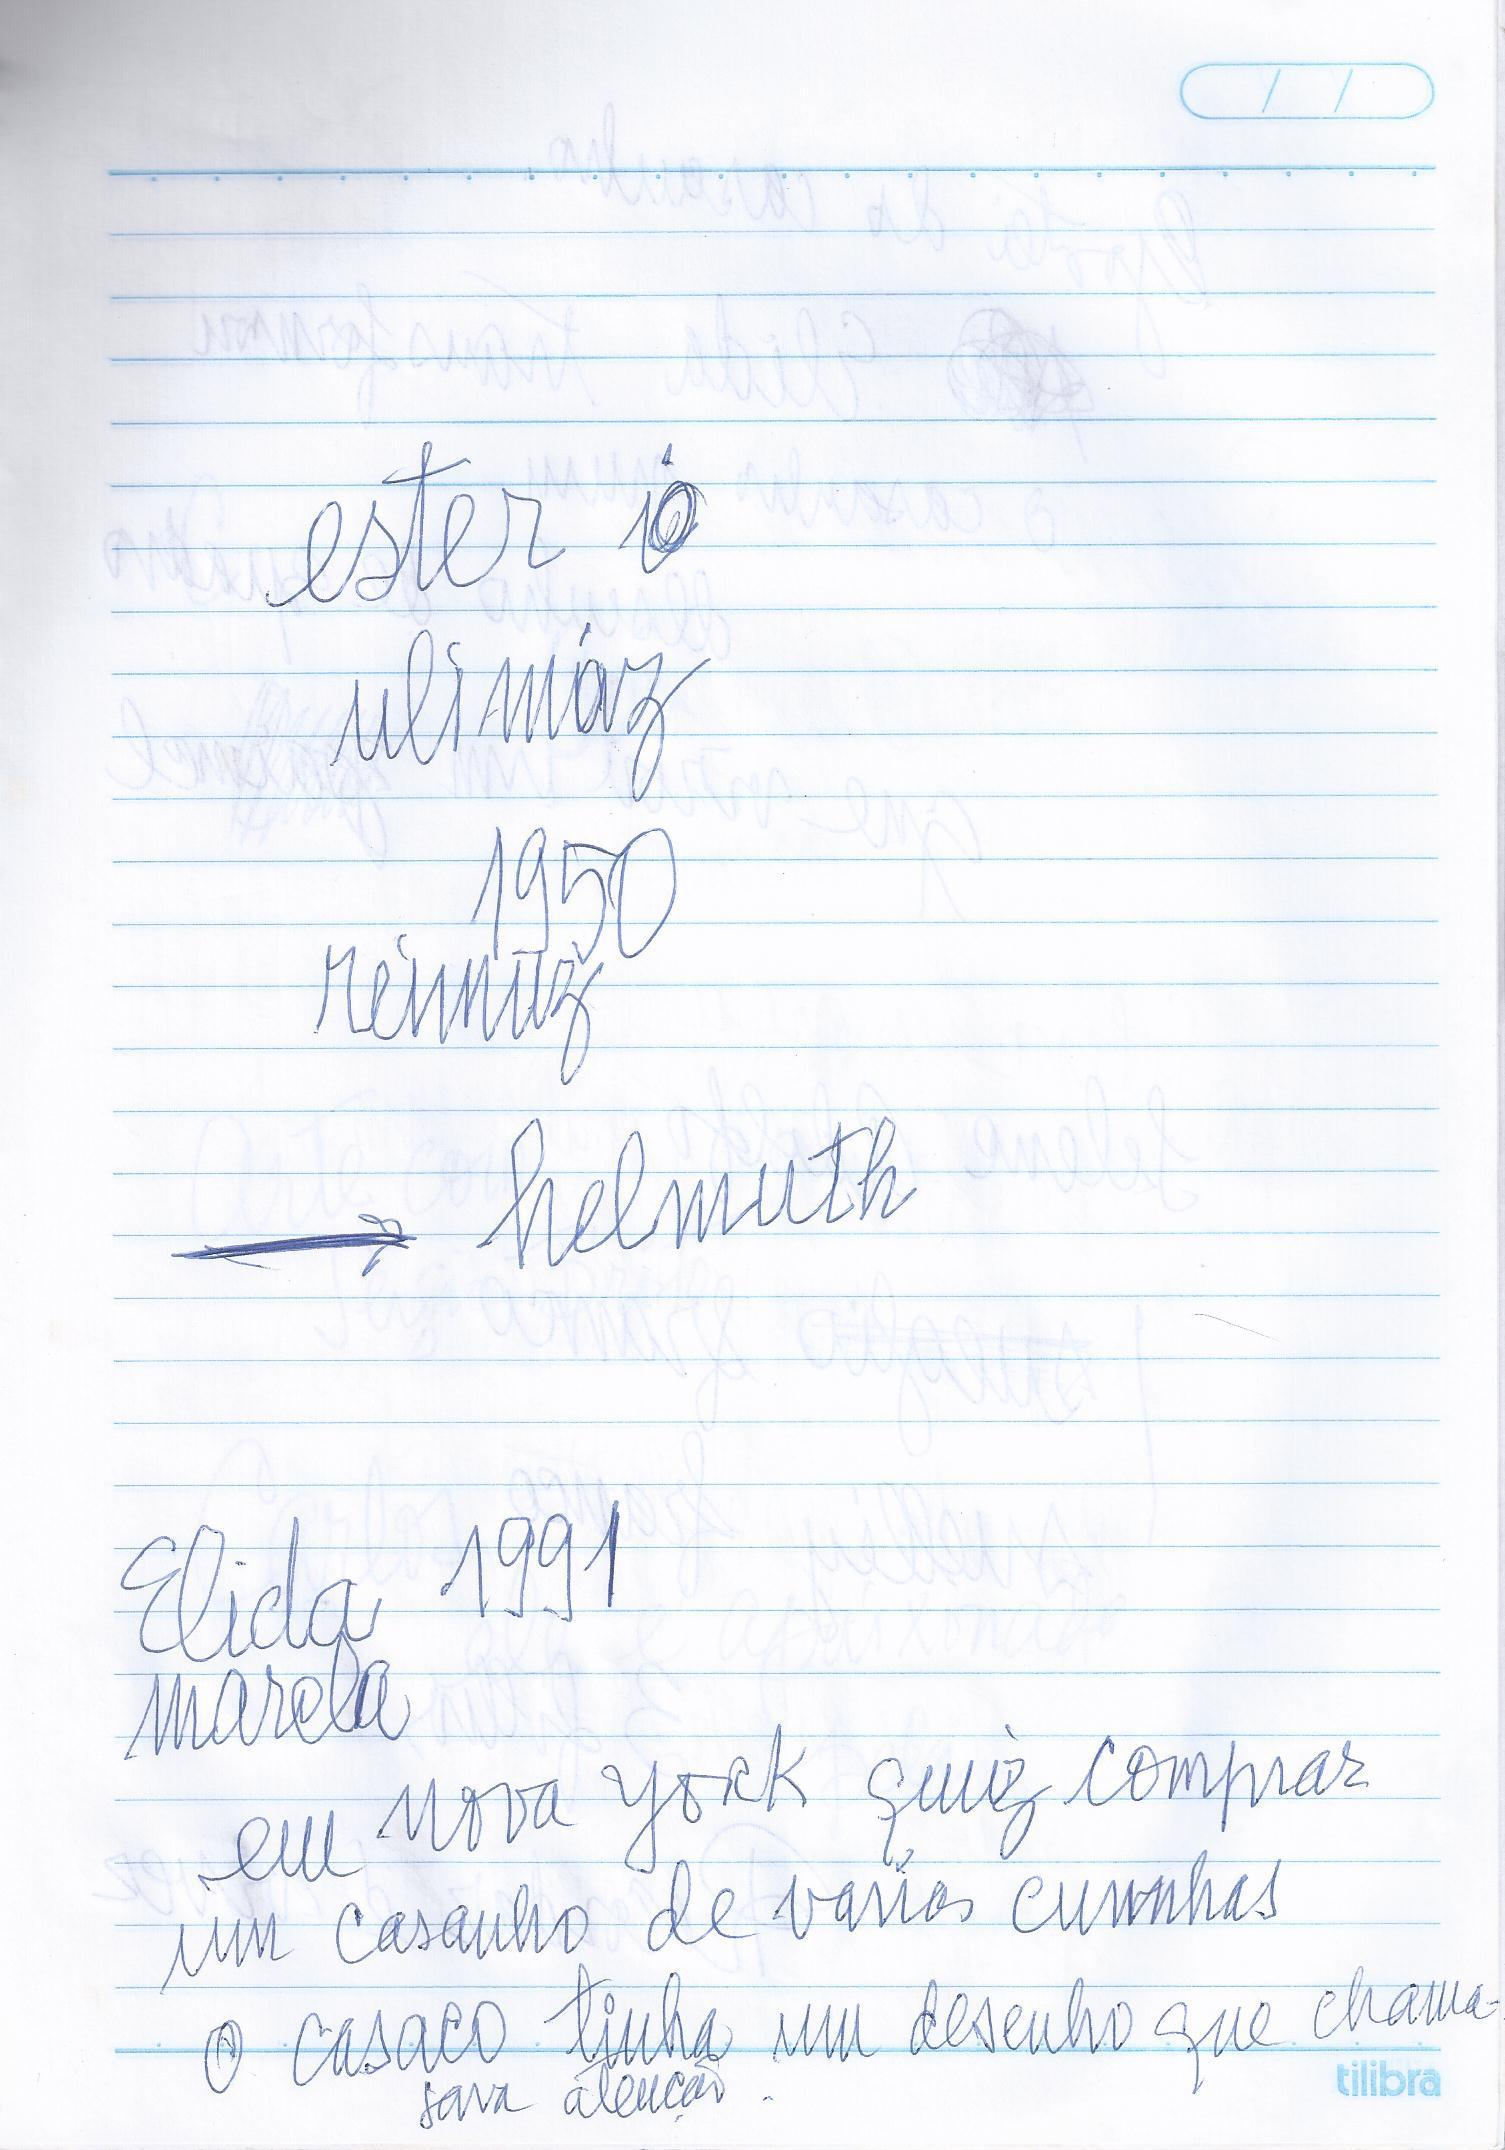 ester
ulimáz
1950
reinniz
helmuth
Elida 1991
marcla
em nova york quiz comprar
um casanho de varios cunnhas
O casaco tinha um desenho que chama-
sava atenção.
tilibra